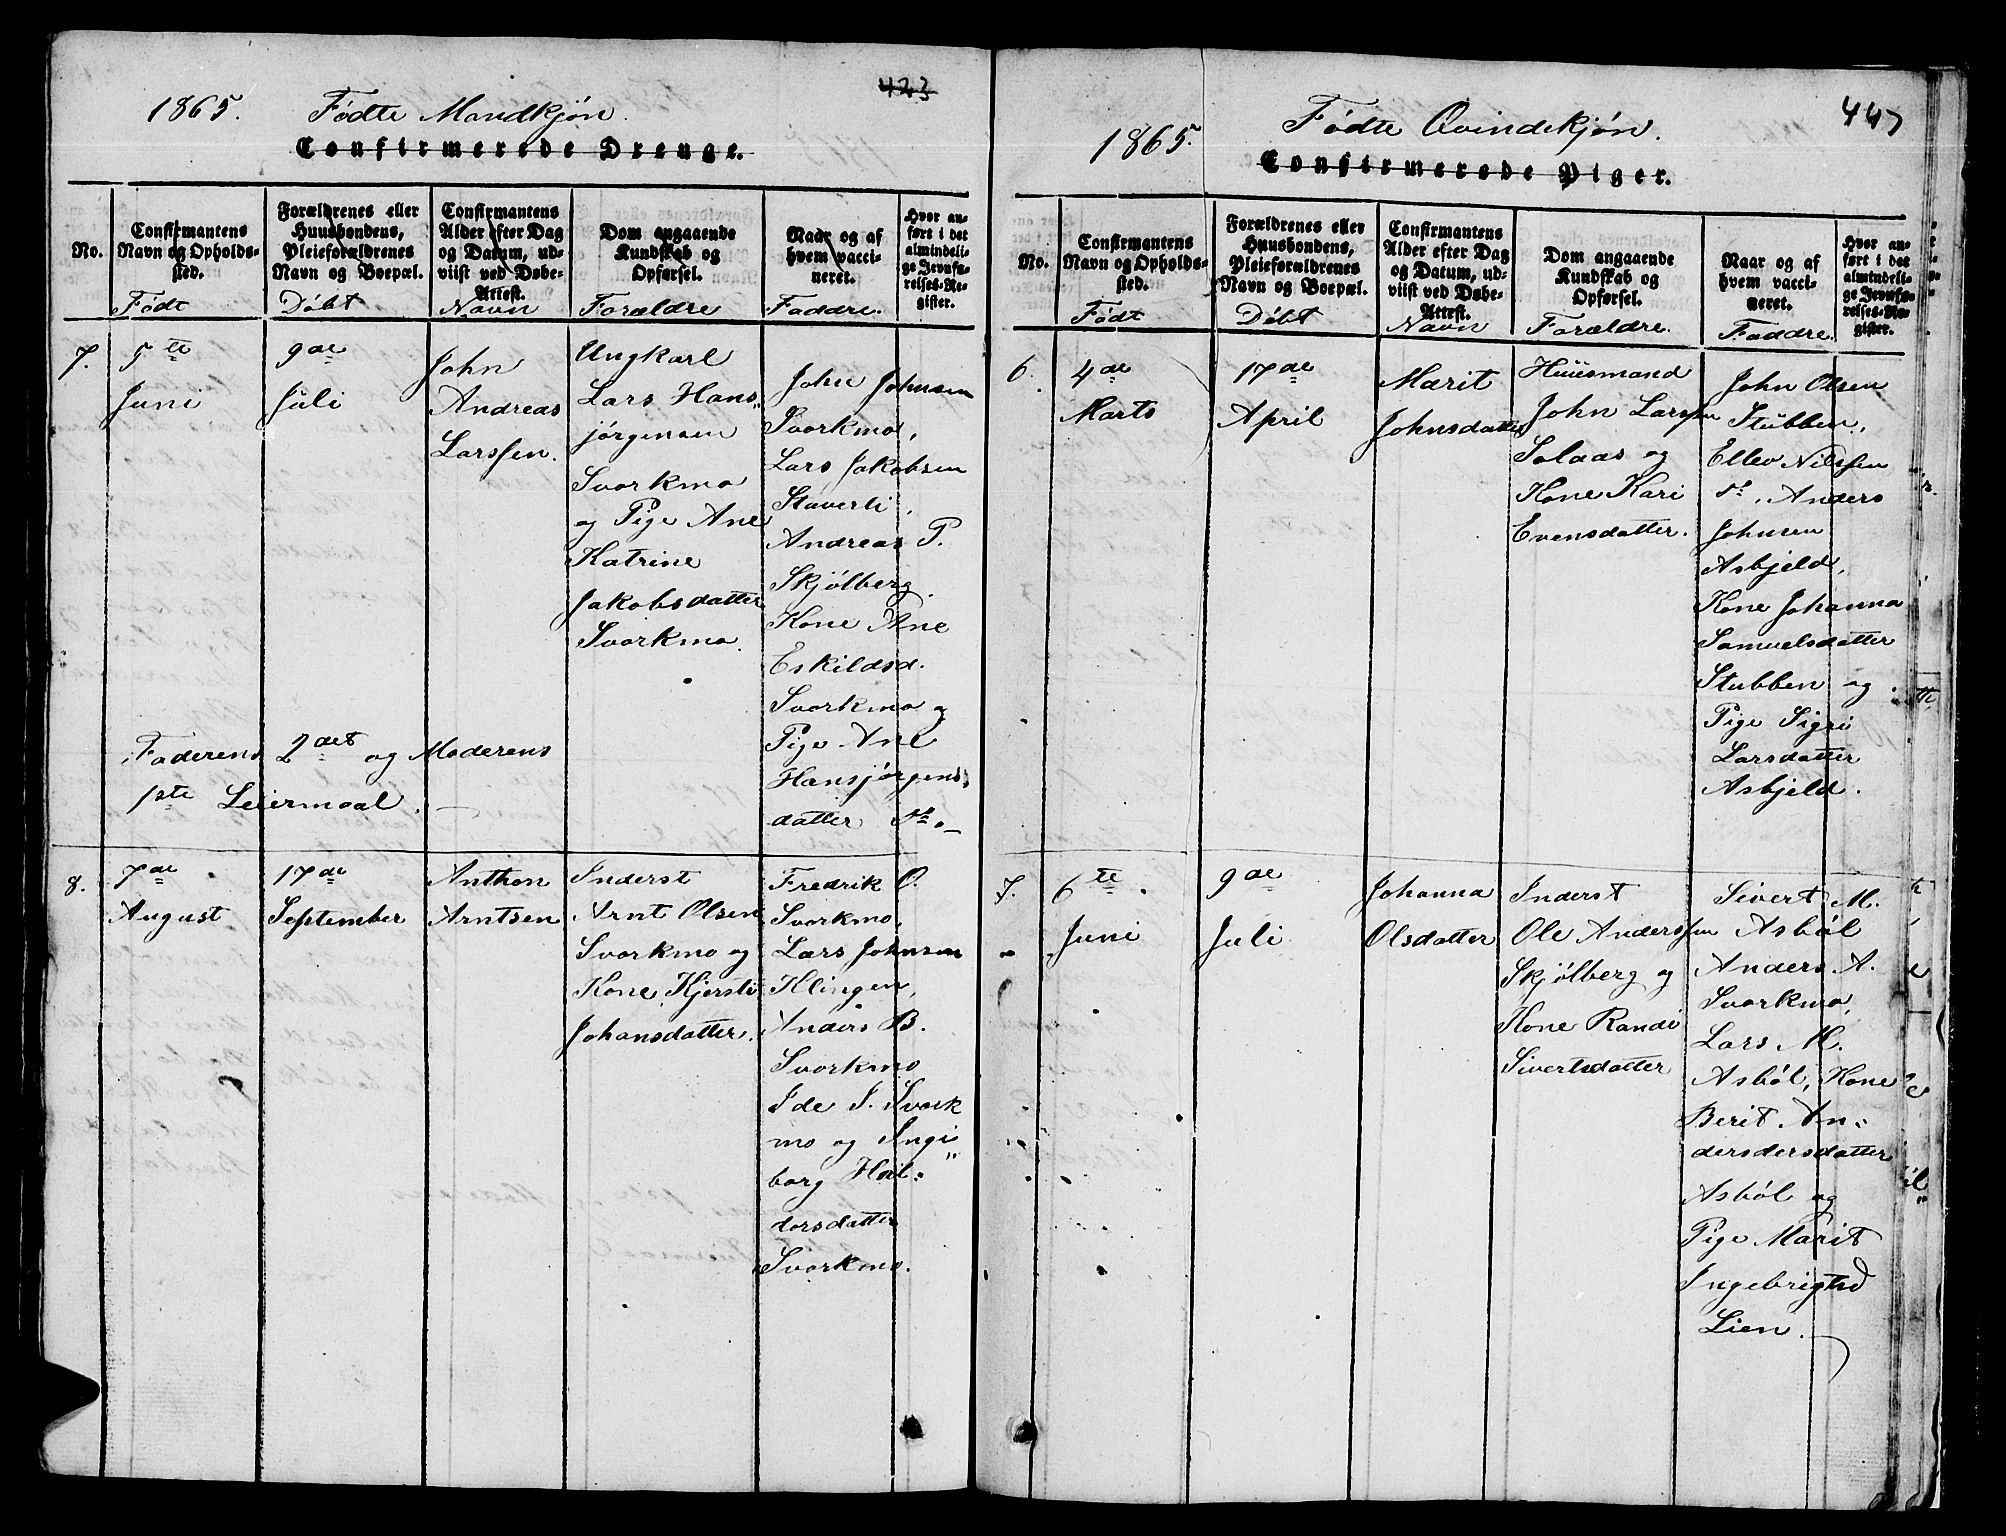 423
1865. Fødte Mandkjøn.
Confirmerede Drenge.
No.
Confirmantens Navn og Opholdssted.
Født
Forældrenes eller Huusbondens, Pleieforældrenes Navn og Boepæl.
Døbt
Confirmantens Alder efter Dag og Datum, udviist ved Døbe-Attest.
Navn
Dom angaaende Kundskab og Opførsel.
Forældre
Naar og af hvem vaccineret.
Faddre.
Hvor anført i det almindelige Jevnførelses-Register.
7.
5te
Juni
9de
Juli
John
Andreas
Larssen.
Ungkarl
Lars Hans„
jørgensen
Svorkmo
og Pige Ane
Katrine
Jakobsdatter
Svorkmo.
John Johnsen
Svorkmo,
Lars Jakobsen
Staverli,
Andreas P.
Skjølberg.
Kone Ane
Eskildsd.
Svorkmo og
Pige Ane
Hansjørgens„
datter sst.
Faderens 2det og Moderens
1ste Leiermaal.
8.
7de
August
17de
September
Anthon
Arntsen
Inderst
Arnt Olsen
Svorkmo og
Kone Kjersti
Johansdatter.
Fredrik O.
Svorkmo,
Lars Johnsen
Klingen,
Anders B.
Svorkmo
Ide I. Svork
mo og Ingi„
borg Hal„
dorsdatter
Svorkmo.
447
1865. Fødte Qvindekjøn.
Confirmerede Piger.
No.
Confirmantens Navn og Opholdssted.
Født
Forældrenes eller Huusbondens, Pleieforældrenes Navn og Boepæl.
Døbt
Confirmantens Alder efter Dag og Datum, udviist ved Døbe-Attest.
Navn
Dom angaaende Kundskab og Opførsel.
Forældre.
Naar og af hvem vaccineret.
Faddre.
Hvor anført i det almindelige Jevnførelses-Register.
6.
4de
Marts
17de
April
Marit
Johnsdatter
Huusmand
John Larssen
Solaas og
Kone Kari
Evensdatter.
John Olsen
Stubben,
Ellev Nilssen
sst, Anders
Johnsen
Asbjeld,
Kone Johanna
Samuelsdatter
Stubben og
Pige Sigri
Larsdatter
Asbjeld.
7.
6te
Juni
9de
Juli
Johanna
Olsdatter
Inderst
Ole Anderssen
Skjølberg og
Kone Randi
Sivertsdatter
Sivert M.
Asbøl
Anders A.
Svorkmo,
Lars M.
Asbøl, Kone
Berit An„
dersdersdatter
Asbøl og
Pige Marit
Ingebrigtsd
Lien.